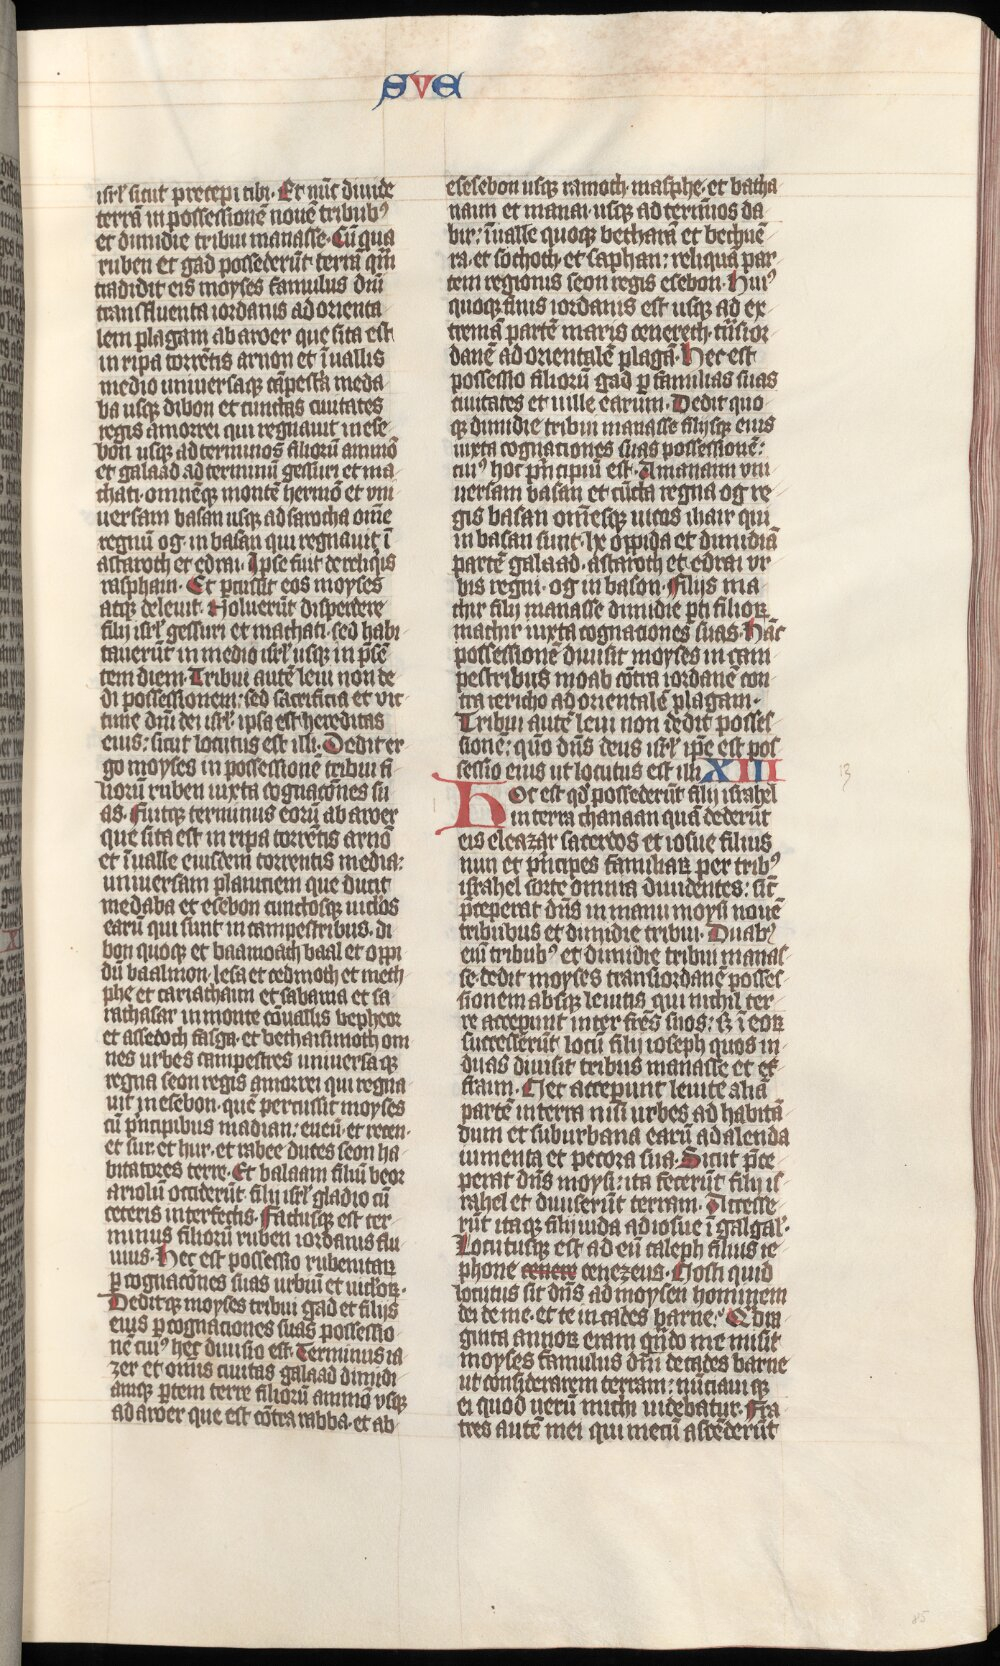 SVE
isrl' sicut precepi tibi. Et nu̅c diuide
terra̅ in possessione̅ noue̅ tribub᷒
et dimidie tribui manasse. Cu̅ qua
ruben et gad possederu̅t terra̅ qua̅
tradidit eis moyses famulus dni̅
transfluenta iordanis ad orienta
lem plagam ab aroer que sita est
in ripa torre̅tis arnon et i̅ uallis
medio uniuersaq; ca̅pestra meda
ba usq; dibon et cunctas ciuitates
regis amorrei qui regnauit in ese
bon usq; ad terminos filioru̅ ammo̅
et galaad ad terminu̅ gessuri et ma
chati. omne̅q; monte̅ hermo̅ et vni
uersam basan usq; ad sarocha om̅e
regnu̅ og. in basan qui regnauit i̅
astaroth et edrai. Ipse fuit de reliq͛s
raspham. Et percussit eos moyses
atq; deleuit. Noluerūt disperdere
filij isrl' gessuri et machati. sed habi
tauerūt in medio isrl' usq; in p̅se̅
tem diem. Tribui aute̅ leui non de
di possessionem: sed sacrificia et vic
time dni̅ dei isrl'. ipsa est hereditas
eius: sicut locutus est illi. Dedit er
go moyses in possessione̅ tribui fi
lioru̅ ruben iuxta cognaco̅nes su
as. Fuitq; terminus eoru̅ ab aroer
que sita est in ripa torrentis arno̅
et i̅ ualle eiusdem torrentis media:
uniuersam planiciem que ducit
medaba et esebon cunctosq; uiclos
earu̅ qui sunt in campestribus. di
bon quoq; et baamoath baal et oppi
du̅ baalmon. Iesa et cedmoth et meth
phe et cariathaim et sabama et sa
rathasar in monte co̅uallis bepheor
et assedoch fasga. et bethaisimoth om
nes urbes campestres uniuersaq;
regna seon regis amorrei qui regna
uit in esebon. que̅ percussit moyses
cu̅ p̅ncipibus madian: eueu̅. et recen.
et sur. et hur. et rabee duces seon ha
bitatores terre. Et balaam filiu̅ beor
ariolu̅ occiderūt filij isrl' gladio cu̅
ceteris interfectis. Factusq; est ter
minus filioru̅ ruben iordanis flu
uius. Hec est possessio rubenitaꝝ
ꝑ cognaco̅nes suas urbiu̅ et uicloꝝ.
Deditq; moyses tribui gad et filijs
eius ꝑ cognaciones suas possessio
ne̅ cui᷒ hec diuisio est. Terminus ia
zer et omnis ciuitas galaad dimidi
amq; ꝑtem terre filioru̅ ammo̅ vsq;
ad aroer que est co̅tra rabba. et ab
esesebon usq; ramoth. masphe. et batha
naim et manai. usq; ad termi̅os da
bir: i̅ ualle quoq; bethara̅ et bethne̅
ra. et sochoth. et saphan: reliqua̅ par
tem regionis seon regis esebon. Hui᷒
quoq; finis iordanis est usq; ad ex
trema̅ parte̅ maris cenereth. tra̅sior
dane̅ ad orientale̅ plaga̅. Hec est
possessio filioru̅ gad ꝑ familias suas
ciuitates et uille earum. Dedit quo
q; dimidie tribui manasse filijsq; eius
iuxta cognationes suas possessione̅:
cui᷒ hoc p̅ncipiu̅ est. A manaim vni
uersam basan et cu̅cta regna og re
gis basan om̅esq; uicos ihair qui
in basan sunt. lx oppida et dimidia̅
parte̅ galaad. astaroth et. edrai vr
bis regni. og in bason. Filijs ma
chir filij manasse dimidie pti filioꝝ
machir iuxta cognationes suas. Ha̅c
possessione̅ diuisit moyses in cam
pestribus moab co̅tra iordane̅ con
tra iericho ad orientale̅ plagam.
Tribui aute̅ leui non dedit posses
sione̅: quo̅ dn̅s deus isrl' ip̅e est pos
sessio eius ut locutus est illi XIII
Hoc est qd̅ possederūt filij israhel
in terra chanaan qua̅ dederūt
eis eleazar sacerdos et iosue filius
nun et p̅ncipes familiaꝝ per trib᷒
israhel sorte omnia diuidentes: sic̅
p̅ceperat dn̅s in manu moysi noue̅
tribubus et dimidie tribui. Duab᷒
eni̅ tribub᷒ et dimidie tribui manas
se. dedit moyses transiordane̅ posses
sionem absq; leuitis qui nichil ter
re acceperunt inter fr̅es suos: s; i̅ eoꝝ
successerūt locu̅ filij ioseph quos in
duas diuisit tribus manasse et ef
fraim. Nec acceperunt leuite alia̅
parte̅ in terra nisi urbes ad habita̅
dum et suburbana earu̅ ad alenda
iumenta et pecora sua. Sicut p̅ce
perat dn̅s moysi: ita fecerūt filij is
rahel et diuiserūt terram. Accesse
rūt itaq; filij iuda ad iosue i̅ galgal'.
Locutusq; est ad eu̅ caleph filius ie
phone cenere cenezeus. Nosti quid
locutus sit dn̅s ad moysen hominem
dei de me. et te in cades barne: Q̅dra
ginta annoꝝ eram qn̅do me misit
moyses famulus dn̅i de cades barne
ut considerarem terram: nu̅ciauiq;
ei quod ueru̅ michi uidebatur. Fra
tres aute̅ mei qui mecu̅ asce̅derūt
13
85